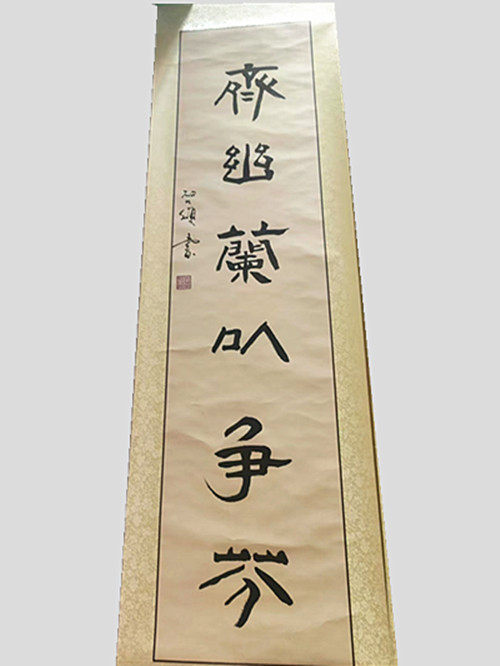 齊幽蘭以争芬
書